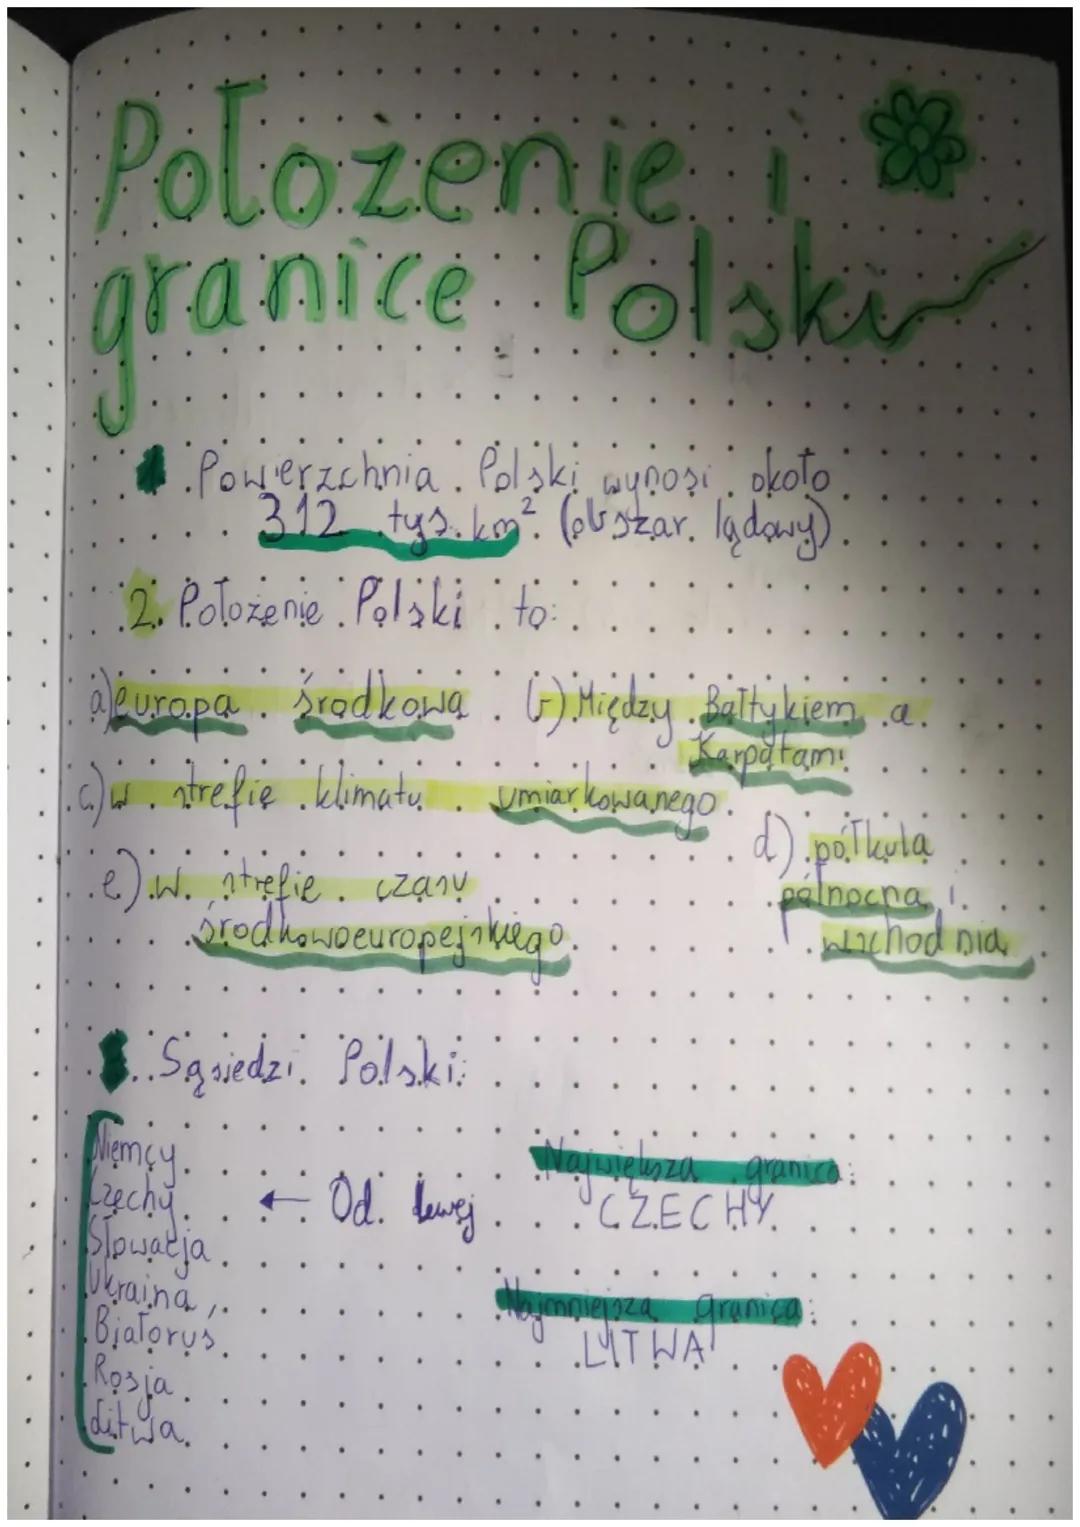 Położenie i
granice Polski
Powierzchnia Polski wynosi około
312 tys. km² (obszar lądowy)
2. Położenie Polski to:
a) europa środkowa b) Między Bałtykiem a
Karpatami
c) w strefie klimatu umiarkowanego
d) półkula
północna i
wschodnia
e) w strefie czasu
środkowoeuropejskiego
Sąsiedzi Polski:
Niemcy
Czechy
Słowacja
Ukraina,
Białoruś
Rosja
Litwa
← Od lewej
Największa granica:
CZECHY
Najmniejsza granica:
LITWA